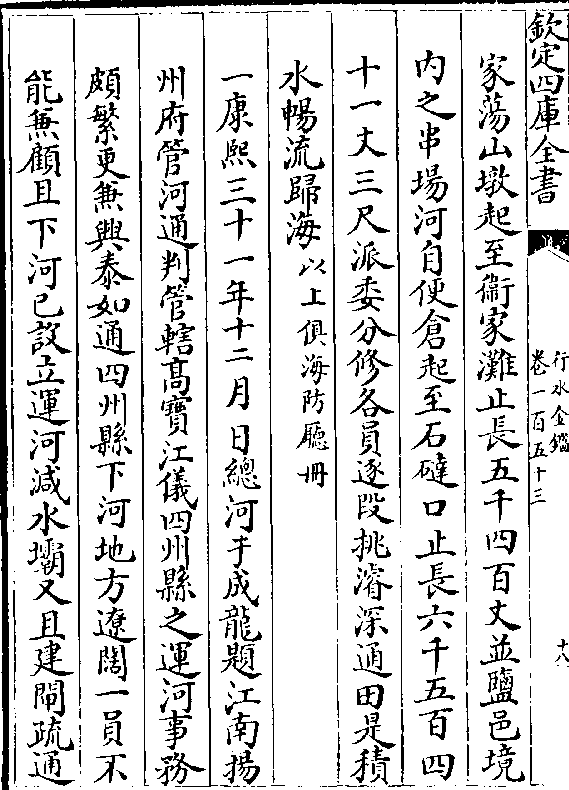 欽定四庫全書
行水金鑑
卷一百五十三
十八
家蕩山墩起至衞家灘止長五千四百丈並鹽邑境
内之串場河自便倉起至石䃮口止長六千五百四
十一丈三尺派委分修各員逐段挑濬深通田是積
水暢流歸海以上俱海防廳冊
一康熙三十一年十二月日總河于成龍題江南揚
州府管河通判管轄髙寶江儀四州縣之運河事務
頗繁更兼興泰如通四州縣下河地方遼闊一員不
能兼顧且下河已設立運河減水壩又且建閘疏通